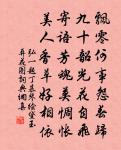 飄零何事怨春歸
九十韶光花自飛
寄語芳魂莫惆悵
美人香草好相依
弘一題丁慕琴繪黛玉
葬花圖詞典網